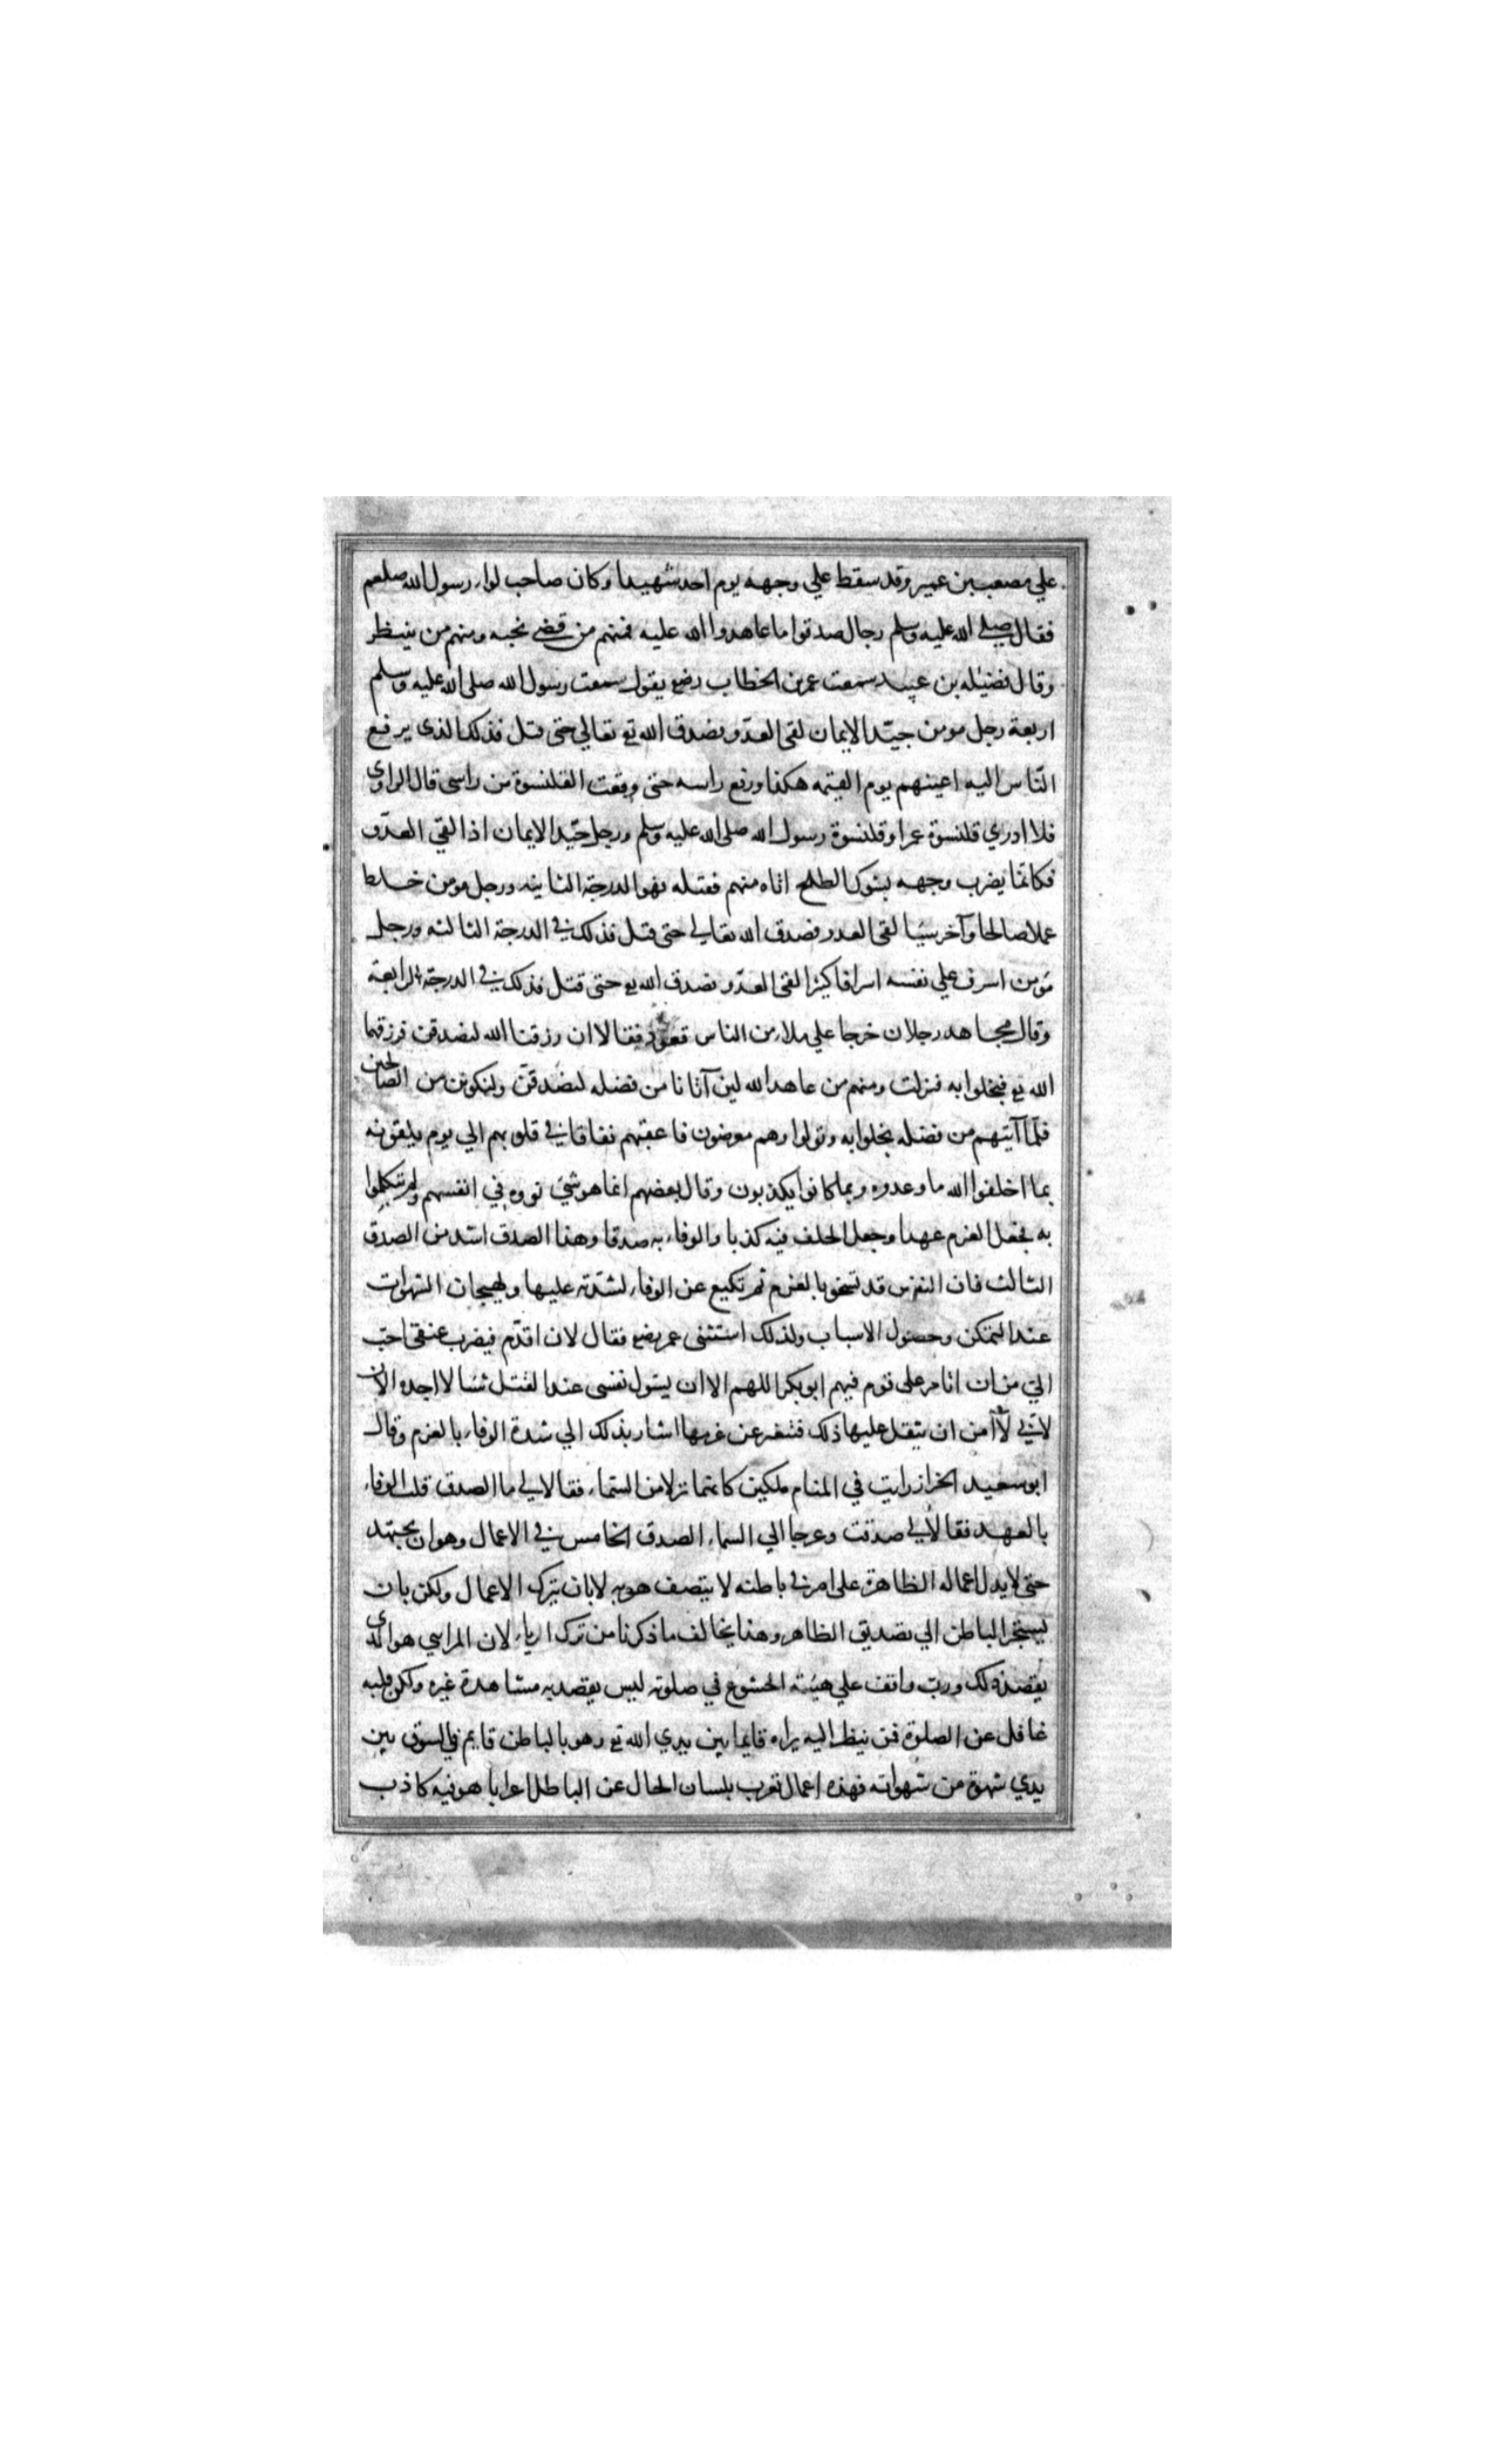 علي مصعب بن عمير وقد سقط علي وجهه يوم احد شهيدا وكان صاحب لواء رسول الله صلعم
فقال صلي الله عليه وسلم رجال صدقوا ما عاهدوا الله عليه فمنهم من قضي نحبه ومنهم من ينتظر
وقال فضيله بن عبيد سمعت عمر بن الخطاب رضع يقول سمعت رسول الله صلى الله عليه وسلم
اربعة رجل مومن جيّد الايمان لقى العدّو فصدق الله تع تعالي حتى قتل فذلك الذى يرفع
النّاس اليه اعينهم يوم القيمه هكذا ورفع راسه حتى وقعت القلنسوة من راسى قال الراوى
فلا ادري قلنسوة عمر او قلنسوة رسول الله صلى الله عليه وسلم ورجل جيّد الايمان اذا لقي العدّو
فكانمّا يضرب وجهه بشوك الطلح اتاه منهم فقتله فهو الدرجة الثانيه ورجل مومن خلط
عملا صالحا وآخر سيّيا لقى العدو فصدق الله تعالي حتى قتل فذلك في الدرجة الثالثه ورجل
مؤمن اسرف علي نفسه اسرافا كيثرا لقى العدّو فصدق الله تع حتى قتل فذلك في الدرجة الرابعة
وقال مجاهد رجلان خرجا علي ملاء من الناس قعود فقالا ان رزقنا الله لنصدقن فرزقهما
الله تع فبخلوا به فنزلت ومنهم من عاهد الله لين آتانا من فضله لنصّدقنّ ولنكونن من الصالحين
فلمّا آتيهم من فضله بخلوا به وتولوا وهم معرضون فاعقبهم نفاقا في قلوبهم الي يوم يلقونه
بما اخلفوا الله ما وعدوه وبما كانوا يكذبون وقال بعضهم انما هو شئ نووه في انفسهم ولم يتكلموا
به فجعل العزم عهدا وجعل الخلف فيه كذبا والوفاء به صدقا وهذا الصدق اشد من الصدق
الثالث فان النفس قد تسخو بالعزم ثم تكيع عن الوفاء لشدّته عليها ولهيجان الشهوات
عند التمكن وحصول الاسباب ولذلك استثنى عمر رضع فقال لان اقدّم فيضرب عنقى احبّ
اليّ من ان اتامر على قوم فيهم ابو بكر اللهم الا ان يسّول نفسى عند القتل شئا لا اجده الان
لانّي لا آمن ان يثقل عليها ذلك فتتغير عن عزمها اشار بذلك الي شدة الوفاء بالعزم وقال
ابو سعيد الخراز رايت في المنام ملكين كانمّا نزلا من السّماء فقالا لي ما الصدق قلت الوفاء
بالعهد فقالا لي صدقت وعرجا الي السماء الصدق الخامس في الاعمال وهو ان يجتهد
حتى لا يدل اعماله الظاهرة على امر في باطنه لا يتصف هو به لا بان يترك الاعمال ولكن بان
يستجر الباطن الي تصديق الظاهر وهذا يخالف ما ذكرنا من ترك الرياء لان المرايي هو الذى
يقصد ذلك وربّ واقف علي هيئة الخشوع في صلوته ليس يقصد به مشاهدة غيره ولكن قلبه
غافل عن الصلوة فمن ينظر اليه يراه قايما بين يدي الله تع وهو بالباطن قايم في السوق بين
يدي شهوة من شهواته فهذه اعمال تعرب بلسان الحال عن الباطل اعرابا هو فيه كاذب